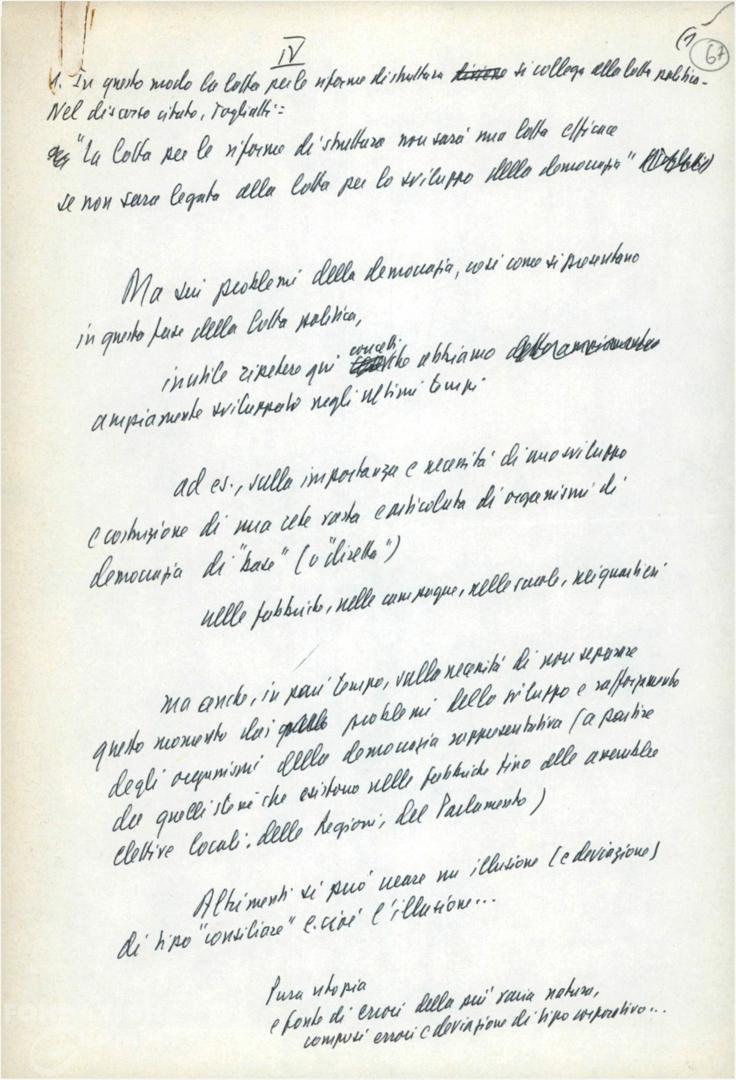 IV
(1
67
1. In questo modo la lotta per le riforme di struttura si collega alla lotta politica.
Nel discorso citato, Togliatti:
"La lotta per le riforme di struttura non sarà una lotta efficace
se non sarà legata alla lotta per lo sviluppo della democrazia"
Ma sui problemi della democrazia, così come si presentano
in questa fase della lotta politica,
inutile ripetere qui concetti che abbiamo
ampiamente sviluppato negli ultimi tempi
ad es., sulla importanza e necessità di uno sviluppo
e costruzione di una rete vasta e articolata di organismi di
democrazia di "base" (o "diretta")
nelle fabbriche, nelle campagne, nelle scuole, nei quartieri
ma anche, in pari tempo, sulla necessità di non separare
questo momento dai problemi dello sviluppo e rafforzamento
degli organismi della democrazia rappresentativa (a partire
da quelli stessi che esistono nelle fabbriche fino alle assemblee
elettive locali, delle Regioni, del Parlamento)
Altrimenti si può creare un illusione (e deviazione)
di tipo "consiliare" e cioè l'illusione...
Pura utopia
e fonte di errori della più varia natura,
compresi errori e deviazione di tipo corporativo...